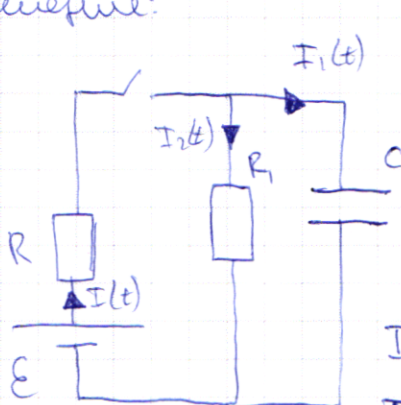 I₁(t)
I₂(t)
R₁
C
R
I(t)
ε
I